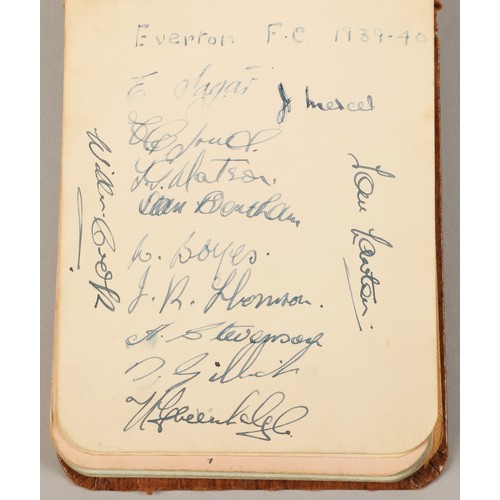 Everton F.C 1939-40
E Sagar
J Mercer
T.G. Jones.
T.G. Watson.
Stan Bentham
W. Boyes.
J. R. Thomson.
A. Stevenson
T. Gillick
N Greenhalgh.
Willie Cook
Tom Lawton